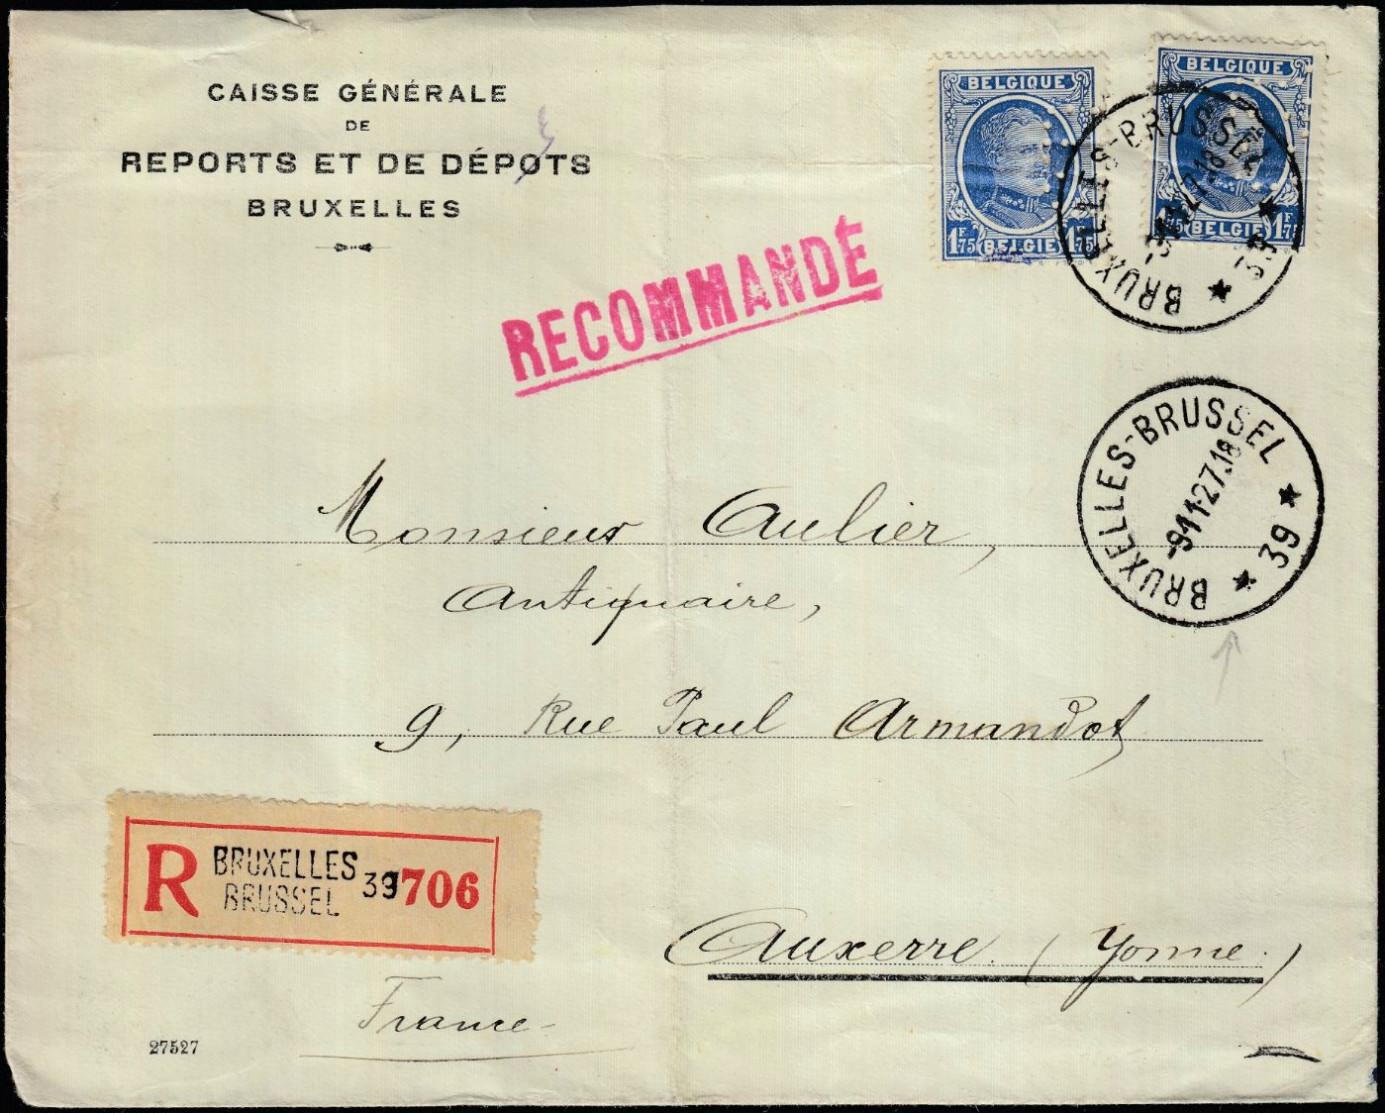 CAISSE GÉNÉRALE
DE
REPORTS ET DE DÉPOTS
BRUXELLES
BELGIQUE
1F75 BELGIE 1F75
BELGIQUE
1F75 BELGIE 1F75
BRUXELLES-BRUSSEL
39
RECOMMANDÉ
BRUXELLES-BRUSSEL
-9 11-27.18
39
Monsieur Aulier,
Antiquaire,
9, Rue Paul Armandot
R BRUXELLES 39 706
BRUSSEL
Auxerre. (Yonne.)
France-
27527